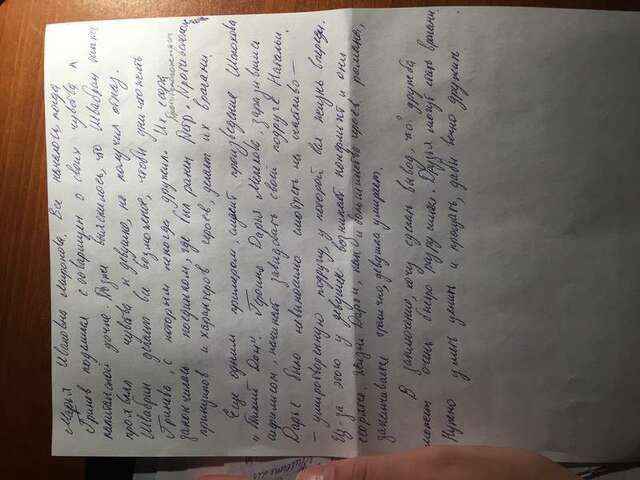 Марья Ивановна Миронова. Все началось, когда
Гринев поделился с товарищем о своих чувства к
капитанской дочке. Позже выяснилось, что Швабрин также
проявлял чувства к девушке, но получил отказ.
Швабрин делает все возможное, чтобы уничтожить
Гринева, с которым некогда дружил. Их ссора
закончилась поединком, где был ранен Петр. Противоположность
принципов и характеров героев, делает их врагами.
Еще одним примером, служит произведение Шолохова
"Тихий Дон". Героиня Дарья Мелехова, заразившись
сифилисом, начинает завидовать своей подруге Натальи.
Дарье было невыносимо смотреть на счастливо-
-умиротворенную подругу, у которой вся жизнь впереди.
Из-за этого у девушек возникает конфликт и они
ссорятся. Жизнь Дарьи, как и большинства героев романа,
заканчивается трагично, девушка умирает.
В заключение, хочу сделать вывод, что дружба
может очень быстро разрушиться. Друзья могут стать врагами.
Нужно уметь ценить и прощать, дабы вечно дружить